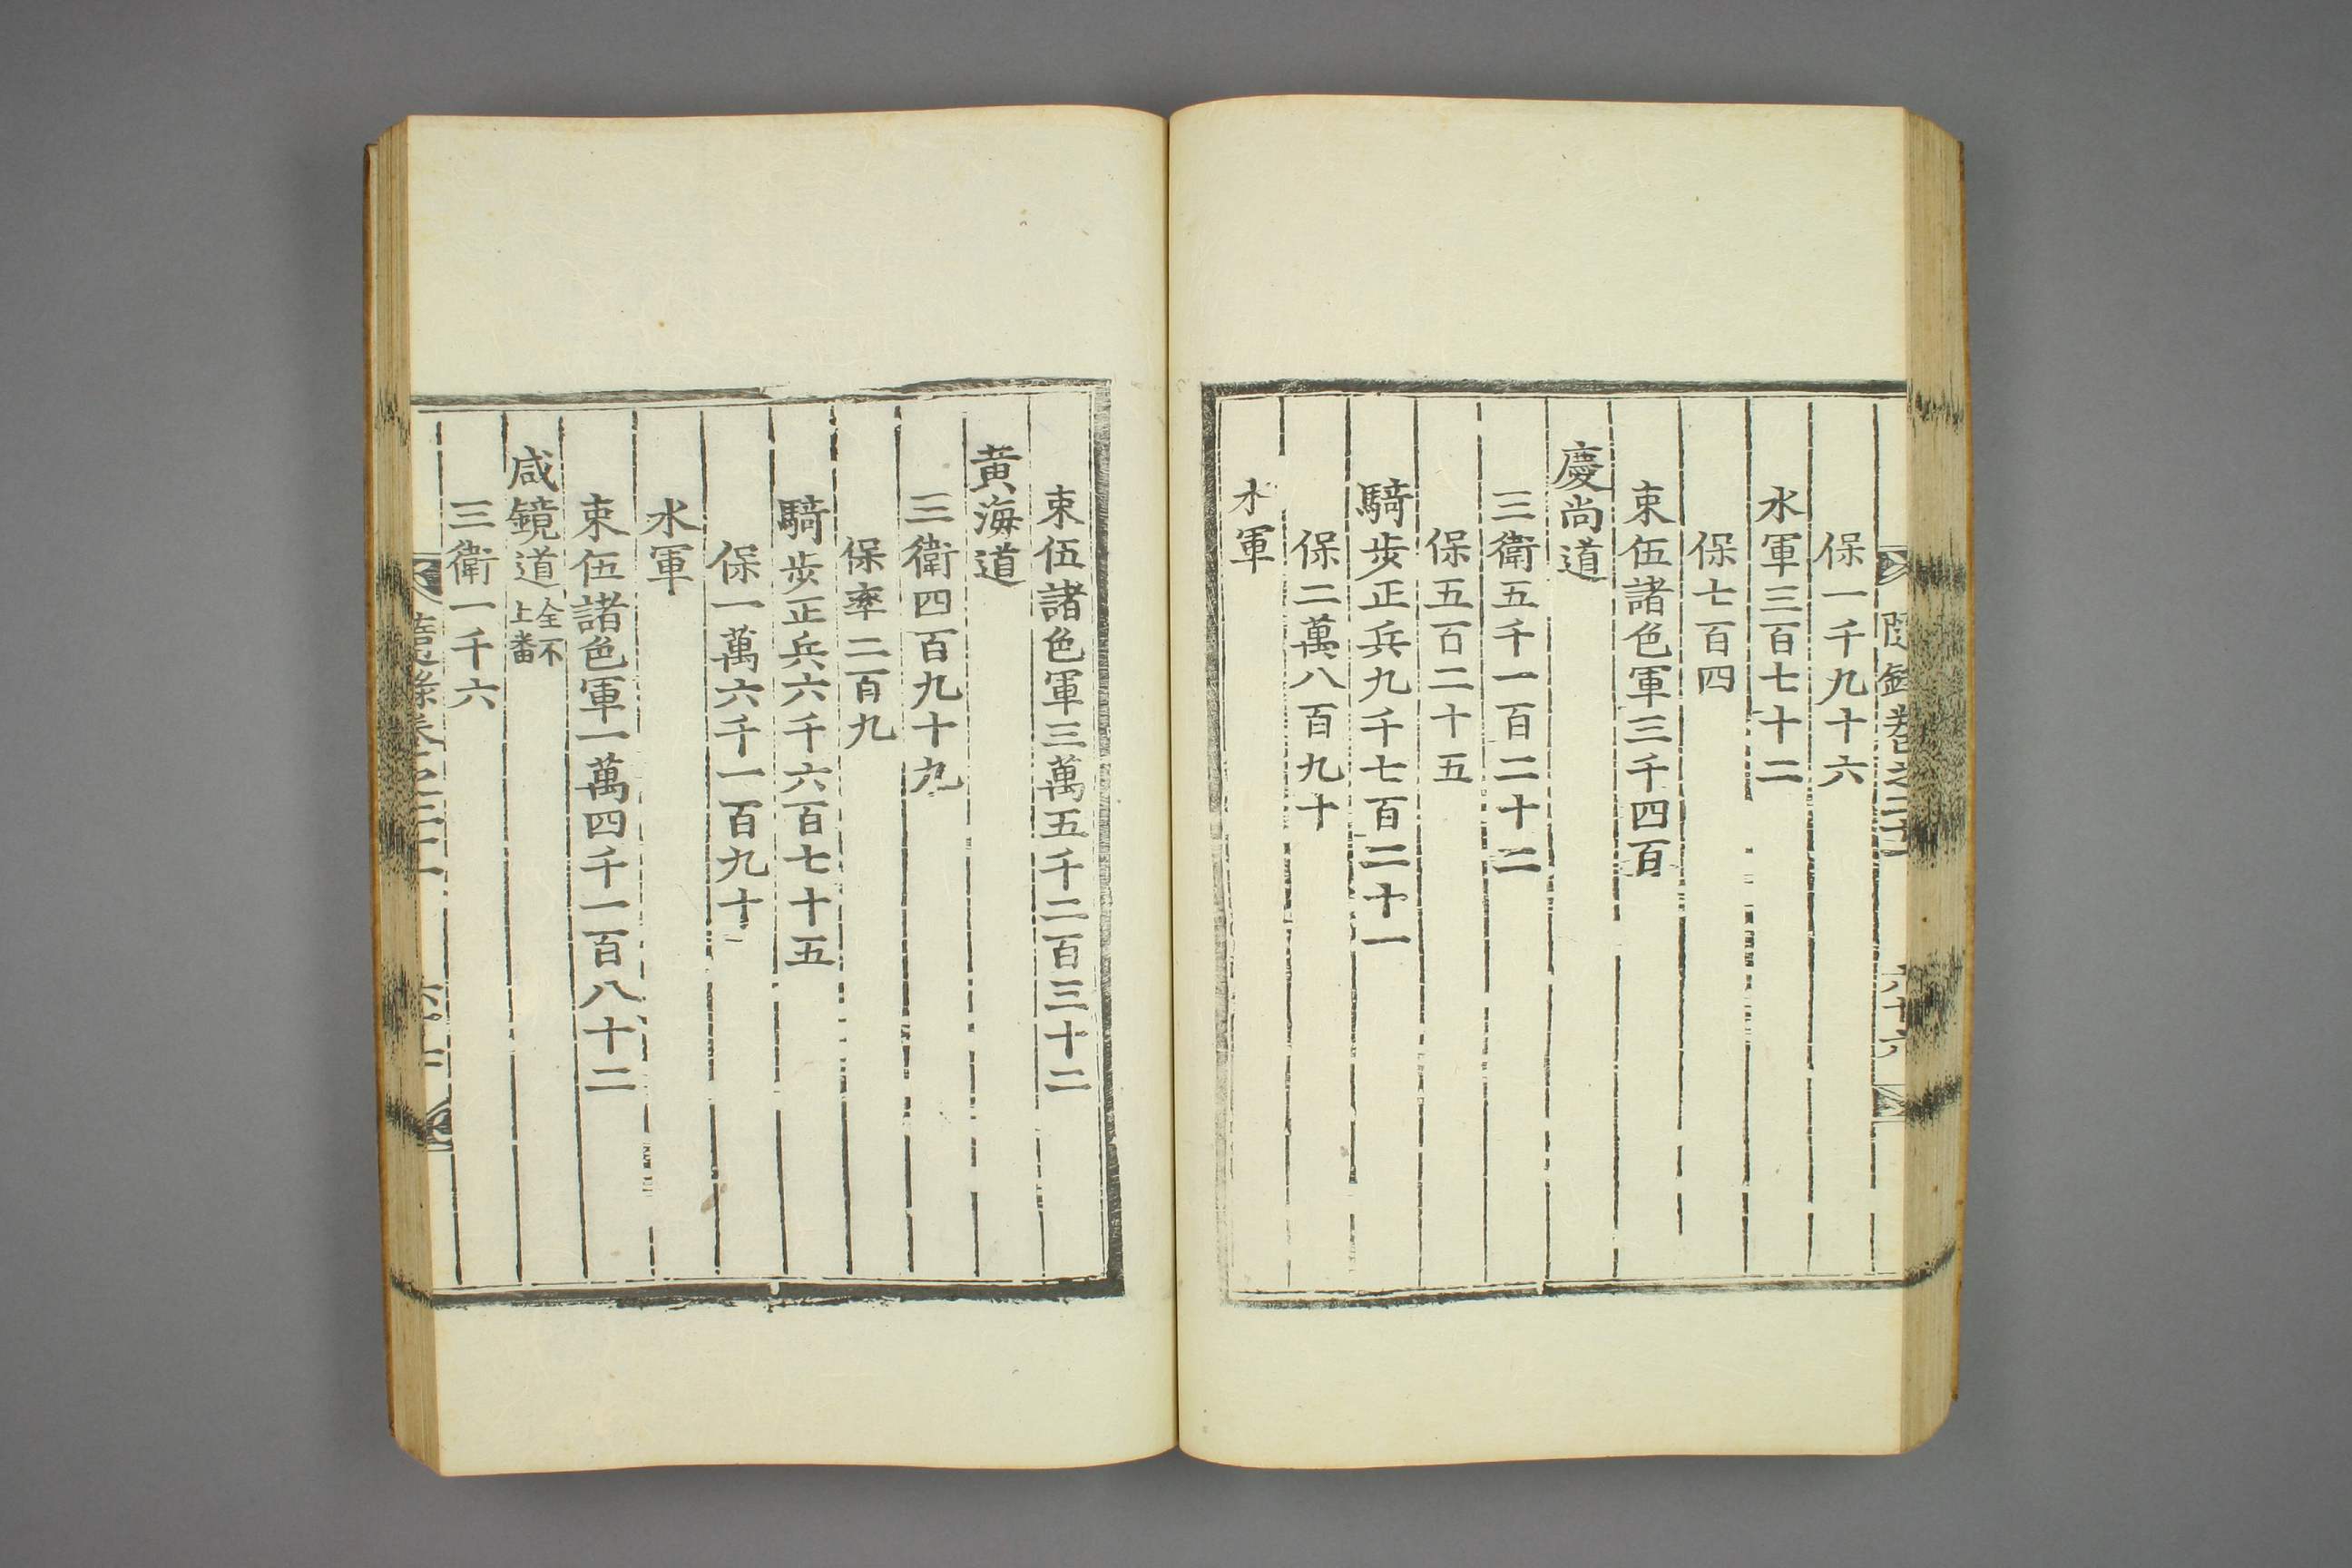 隨錄卷之二十一
六十六
保一千九十六
水軍三百七十二
保七百四
束伍諸色軍三千四百
慶尚道
三衛五千一百二十二
保五百二十五
騎步正兵九千七百二十一
保二萬八百九十
水軍
束伍諸色軍三萬五千二百三十二
黃海道
三衛四百九十九
保率二百九
騎步正兵六千六百七十五
保一萬六千一百九十
水軍
束伍諸色軍一萬四千一百八十二
咸鏡道全不上番
三衛一千六